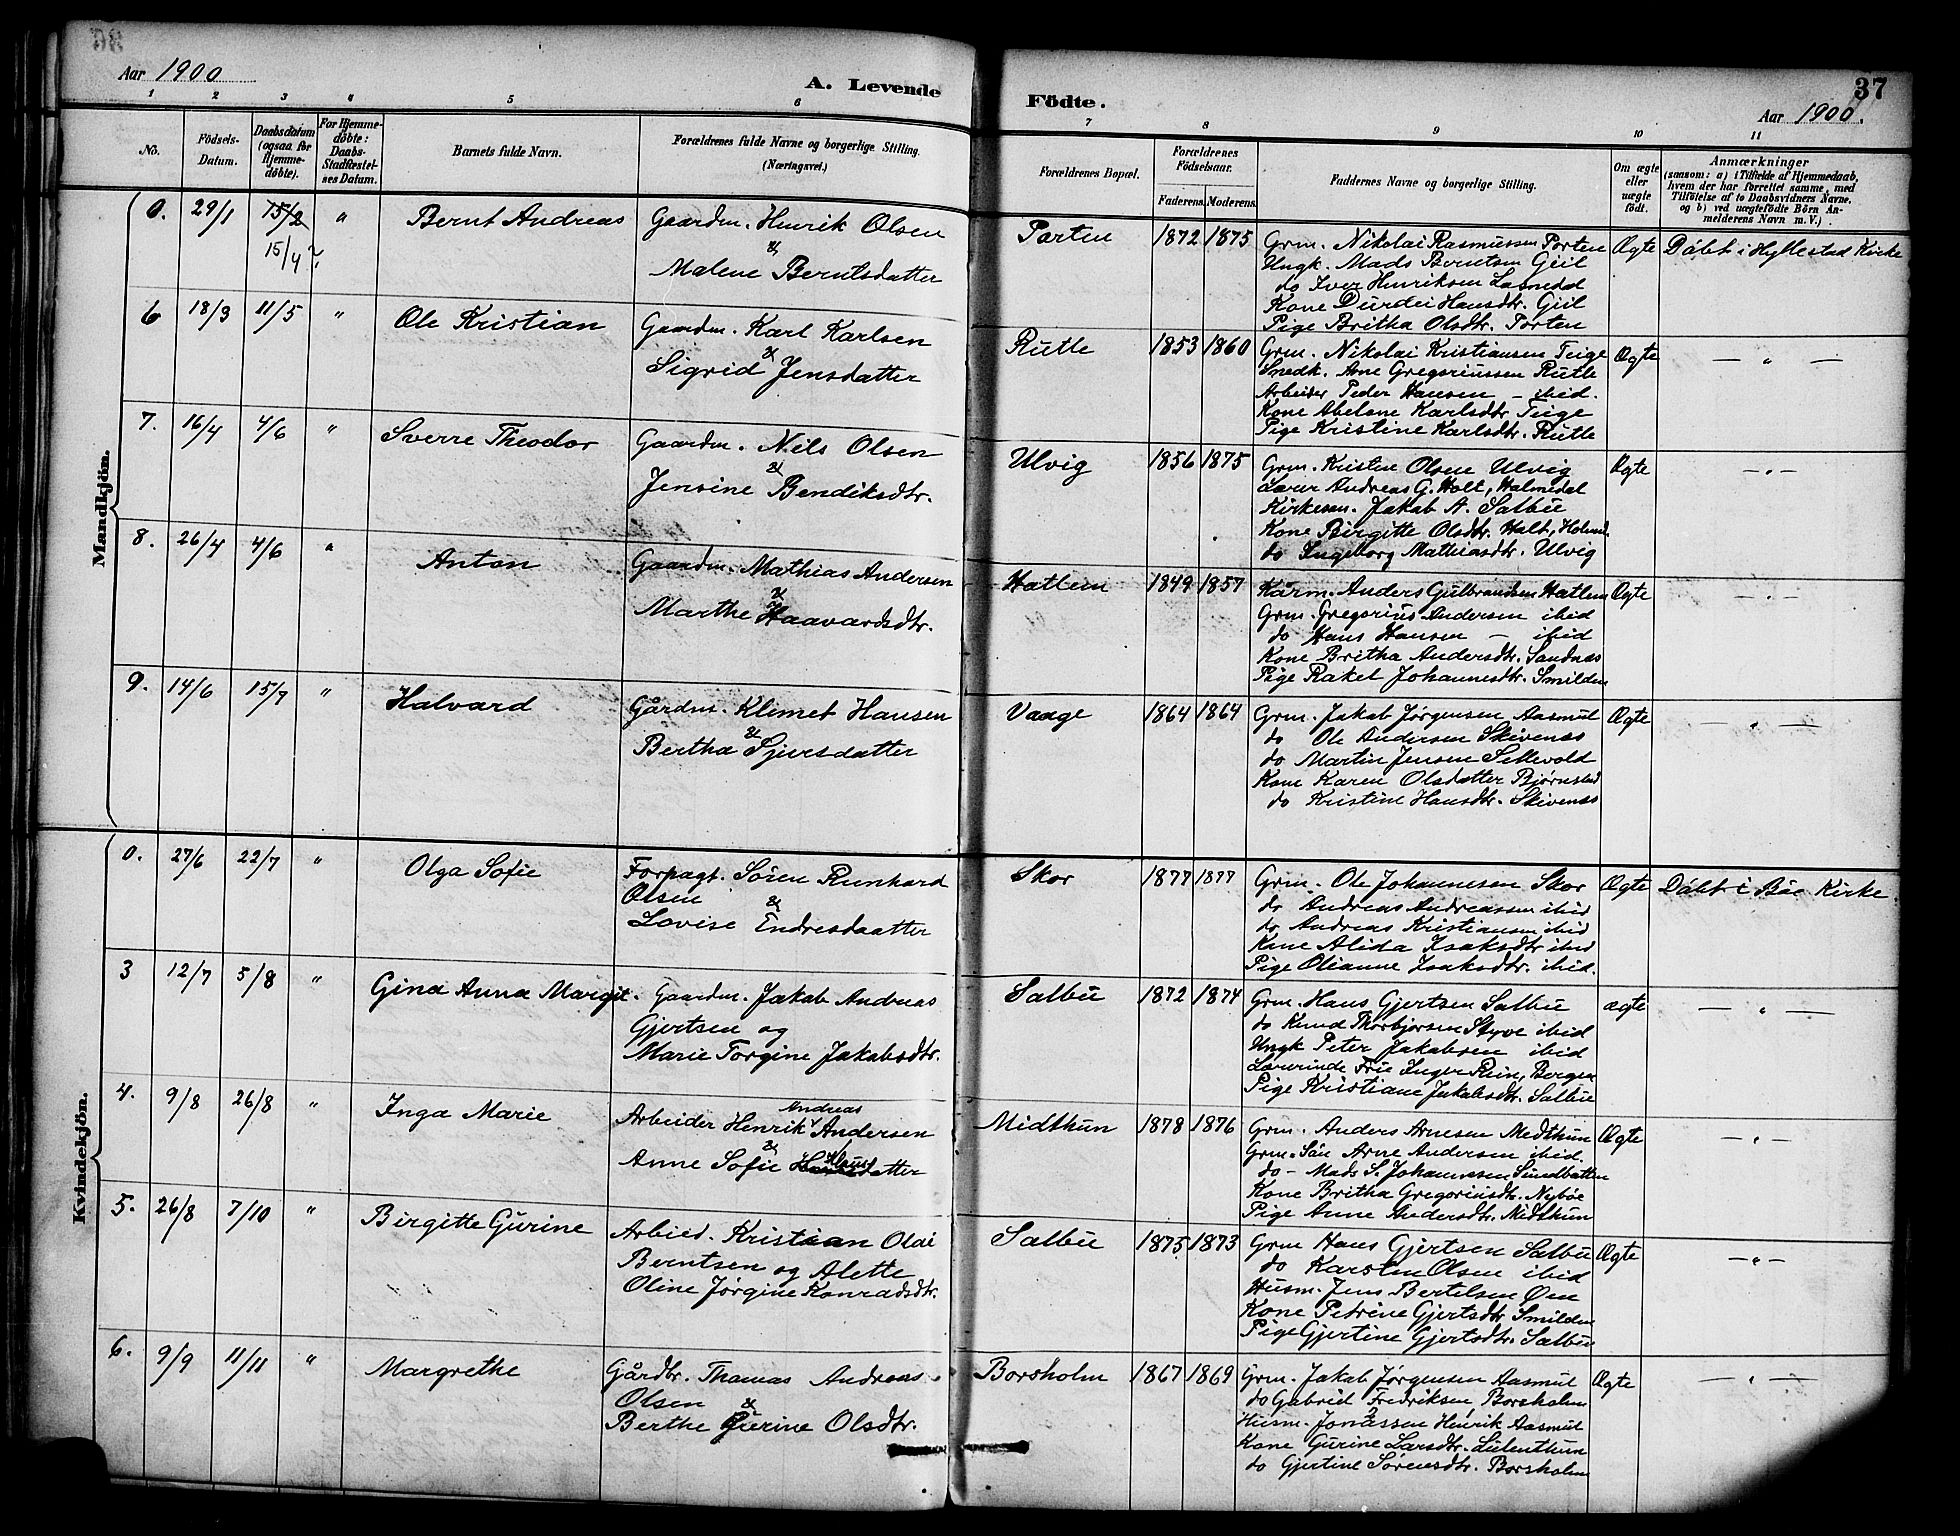 Aar 1900
A. Levende Födte.
37
Aar 1900.
1 2 3 4 5 6 7 8 9 10 11
No.
Födsels-
Datum.
Daabsdatum
(ogsaa for
Hjemme-
döbte).
For Hjemme-
döbte:
Daabs-
Stadfæstel-
ses Datum.
Barnets fulde Navn.
Forældrenes fulde Navne og borgerlige Stilling.
(Næringsvei.)
Forældrenes Bopæl.
Forældrenes
Födselsaar.
Faderens. Moderens.
Faddernes Navne og borgerlige Stilling.
Om ægte
eller
uægte
födt.
Anmærkninger
(saasom: a) i Tilfælde af Hjemmedaab,
hvem der har forrettet samme, med
Tilföielse af to Daabsvidners Navne,
og b) ved uægtefödte Börn An-
melderens Navn m. V.)
Mandkjön.
0. 29/1 15/2 " Bernt Andreas Gaardm. Henrik Olsen
15/4?
&
Malene Berntsdatter
Porten 1872 1875 Grm. Nikolai Rasmussen Porten Ægte Döbt i Hyllestad Kirke
Ungk. Mads Berntsen Geil
do Iver Henriksen
Kone Durdei Hansdtr. Geil
Pige Britha Olsdtr. Porten
6 18/3 11/5 " Ole Kristian Gaardm. Karl Karlsen
&
Sigrid Jensdatter
Rutle 1853 1860 Grm. Nikolai Kristiansen Teige Ægte — " —
Snedk. Arne Gregoriussen Rutle
Arbeider Peder Hansen — ibid.
Kone Abelone Karlsdtr Teige
Pige Kristine Karlsdtr. Rutle
7. 16/4 4/6 " Sverre Theodor Gaardm. Nils Olsen
&
Jensine Bendiksdtr.
Ulvig 1856 1875 Grm. Kristen Olsen Ulvig Ægte — " —
Lærer Andreas G. Holt, Holmedal
Kirkesn. Jakob A. Salbu
Kone Birgitte Olsdtr. Holt, Holmed.
do Ingeborg Mathiasdtr. Ulvig
8. 26/4 4/6 " Anton Gaardm. Mathias Andersen
&
Marthe Haavardsdtr.
Hatlem 1849 1857 Kårm. Anders Gulbrandsen Hatlem Ægte — " —
Grm. Gregorius Andersen ibid
do Hans Hansen — ibid
Kone Britha Andersdtr. Sandnæs
Pige Rakel Johannesdtr. Smilden
9. 14/6 15/7 " Halvard Gårdm. Klimet Hansen
&
Bertha Sjursdatter
Vaage 1864 1864 Grm. Jakob Jørgensen Aasmul Ægte — " —
do Ole Andersen Skivenæs
do Martin Jensen Sellevold
Kone Karen Olsdatter Bjørnstad
do Kristine Hansdtr. Skivenæs
Kvindekjön.
0. 27/6 22/7 " Olga Sofie Forpagt. Sören Reinhard
Olsen
&
Lovise Endresdaatter
Skor 1877 1877 Grm. Ole Johannesen Skor Ægte Döbt i Bö Kirke.
do Andreas Andreassen ibid
do Andreas Kristiansen ibid
Kone Alida Isaksdtr ibid
Pige Olianne Isaksdtr. ibid.
3 12/7 5/8 " Gina Anna Margit. Gaardm. Jakob Andreas
Gjertsen og
Marie Torgine Jakobsdtr.
Salbu 1872 1874 Grm. Hans Gjertsen Salbu ægte — " —
do Knud Thorbjørsen Styve ibid
Ungk Peter Jakobsen ibid
Lærerinde Frk Inger Rein, Bergen
Pige Kristiane Jakobsdtr. Salbu
4. 9/8 26/8 " Inga Marie Arbeider Henrik Andreas Andersen
&
Anne Sofie
Midthun 1878 1876 Grm. Anders Arnesen Medthun Ægte — " —
Grm. Sön Arne Andersen ibid.
do - Mads S. Johannessen Sundbotten
Kone Britha Gregoriusdtr. Nyböe
Pige Anne Andersdtr. Midthun
5. 26/8 7/10 " Birgitte Gurine Arbeid. Kristian Olai
Berntsen og Alette
Oline Jørgine Konradsdtr.
Salbu 1875 1873 Grm Hans Gjertsen Salbu Ægte — " —
do Karsten Olsen ibid
Husm. Jens Bertelsen Øen
Kone Petrine Gjertsdtr Smilden
Pige Gjertine Gjertsdtr. Salbu
6. 9/9 11/11 " Margrethe Gårdbr. Thomas Andreas
Olsen
&
Berthe Gurine Olsdtr.
Borsholm 1867 1869 Grm. Jakob Jørgensen Aasmul Ægte — " —
do Gabriel Fredriksen Borsholm
Husm. Jonassen Henrik Aasmul
Kone Gurine Larsdtr.
do Gjertine Sörensdtr. Borsholm